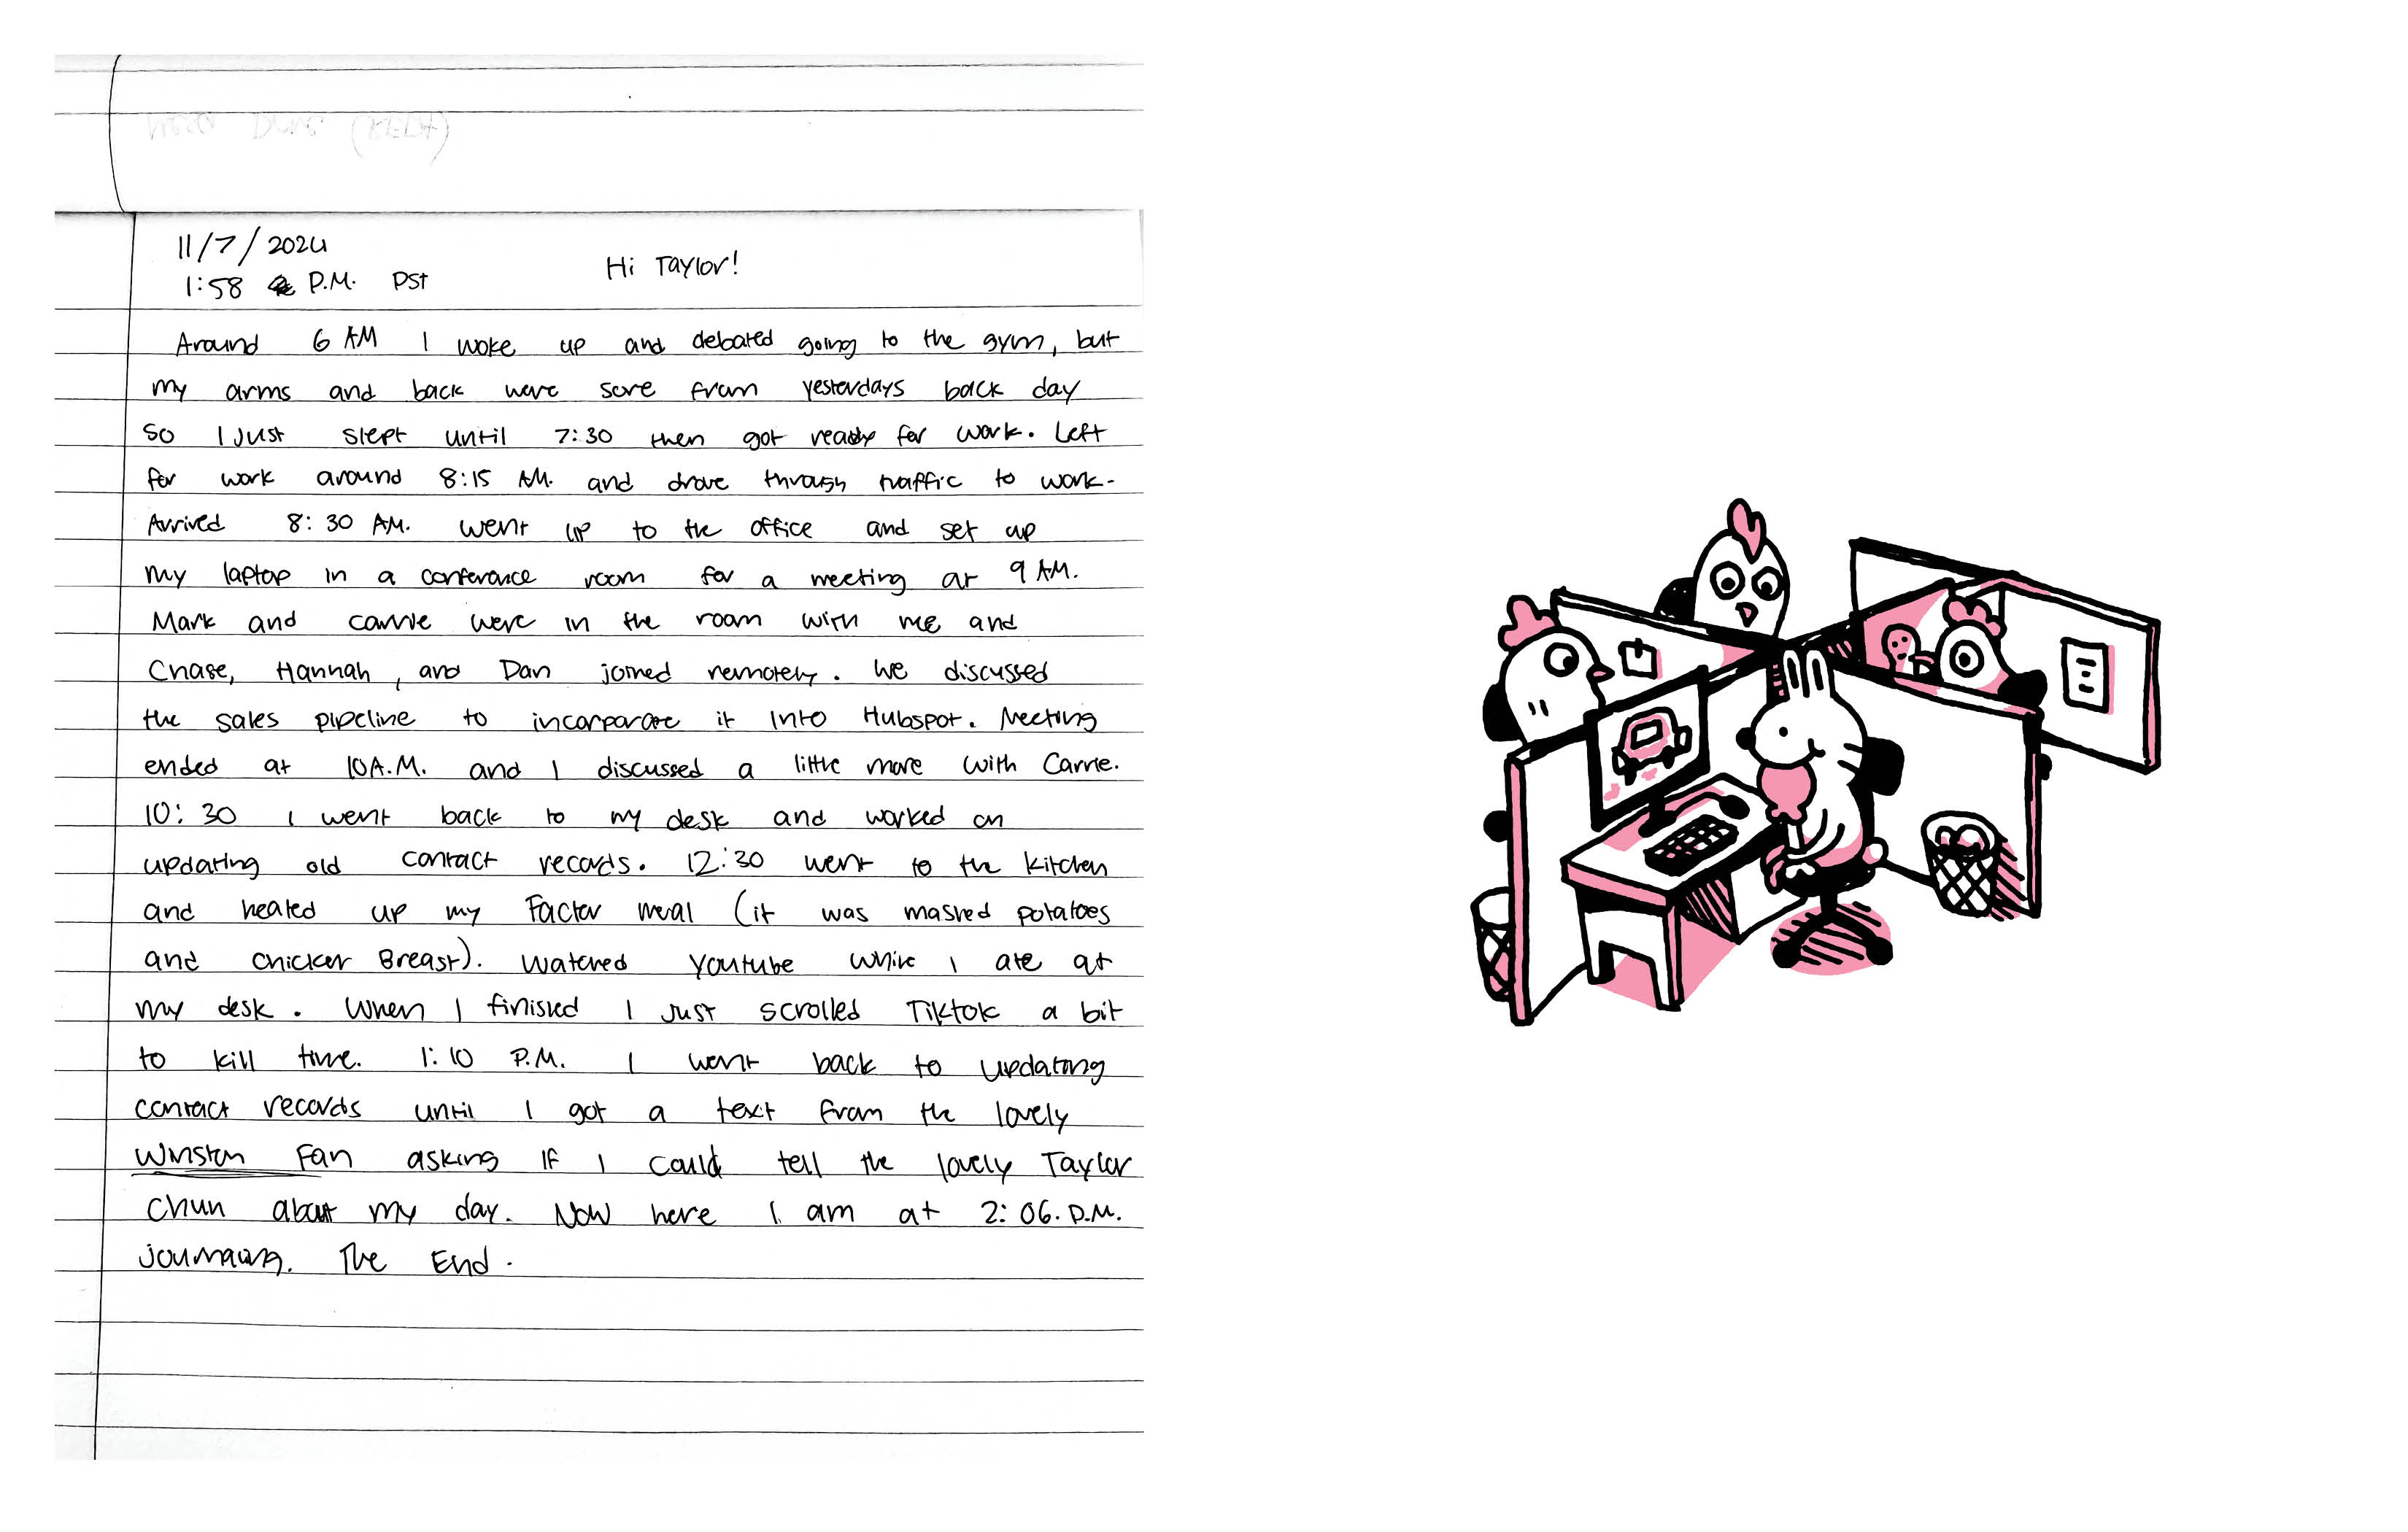 11/7/2024
1:58 P.M. PST
Hi Taylor!
Around 6 AM I woke up and debated going to the gym, but
my arms and back were sore from yesterdays back day
so I Just slept until 7:30 then got ready for work. Left
for work around 8:15 AM. and drove through traffic to work.
Arrived 8:30 AM. went up to the office and set up
my laptop in a conference room for a meeting at 9 AM.
Mark and Carrie were in the room with me and
Chase, Hannah, and Dan joined remotely. We discussed
the sales pipeline to incorporate it into Hubspot. Meeting
ended at 10 A.M. and I discussed a little more with Carrie.
10:30 I went back to my desk and worked on
updating old contact records. 12:30 went to the kitchen
and heated up my Factor meal (it was mashed potatoes
and chicken Breast). Watched youtube while I ate at
my desk. When I finished I Just scrolled Tiktok a bit
to kill time. 1:10 P.M. I went back to updating
contact records until I got a text from the lovely
Winston Fan asking if I could tell the lovely Taylor
Chun about my day. Now here I am at 2:06. P.M.
journaling. The End.